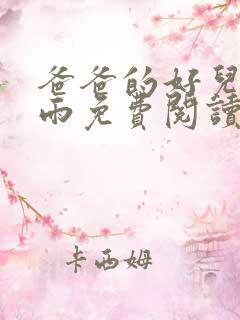 爸爸的好兒
雨免費閱讀
卡西姆